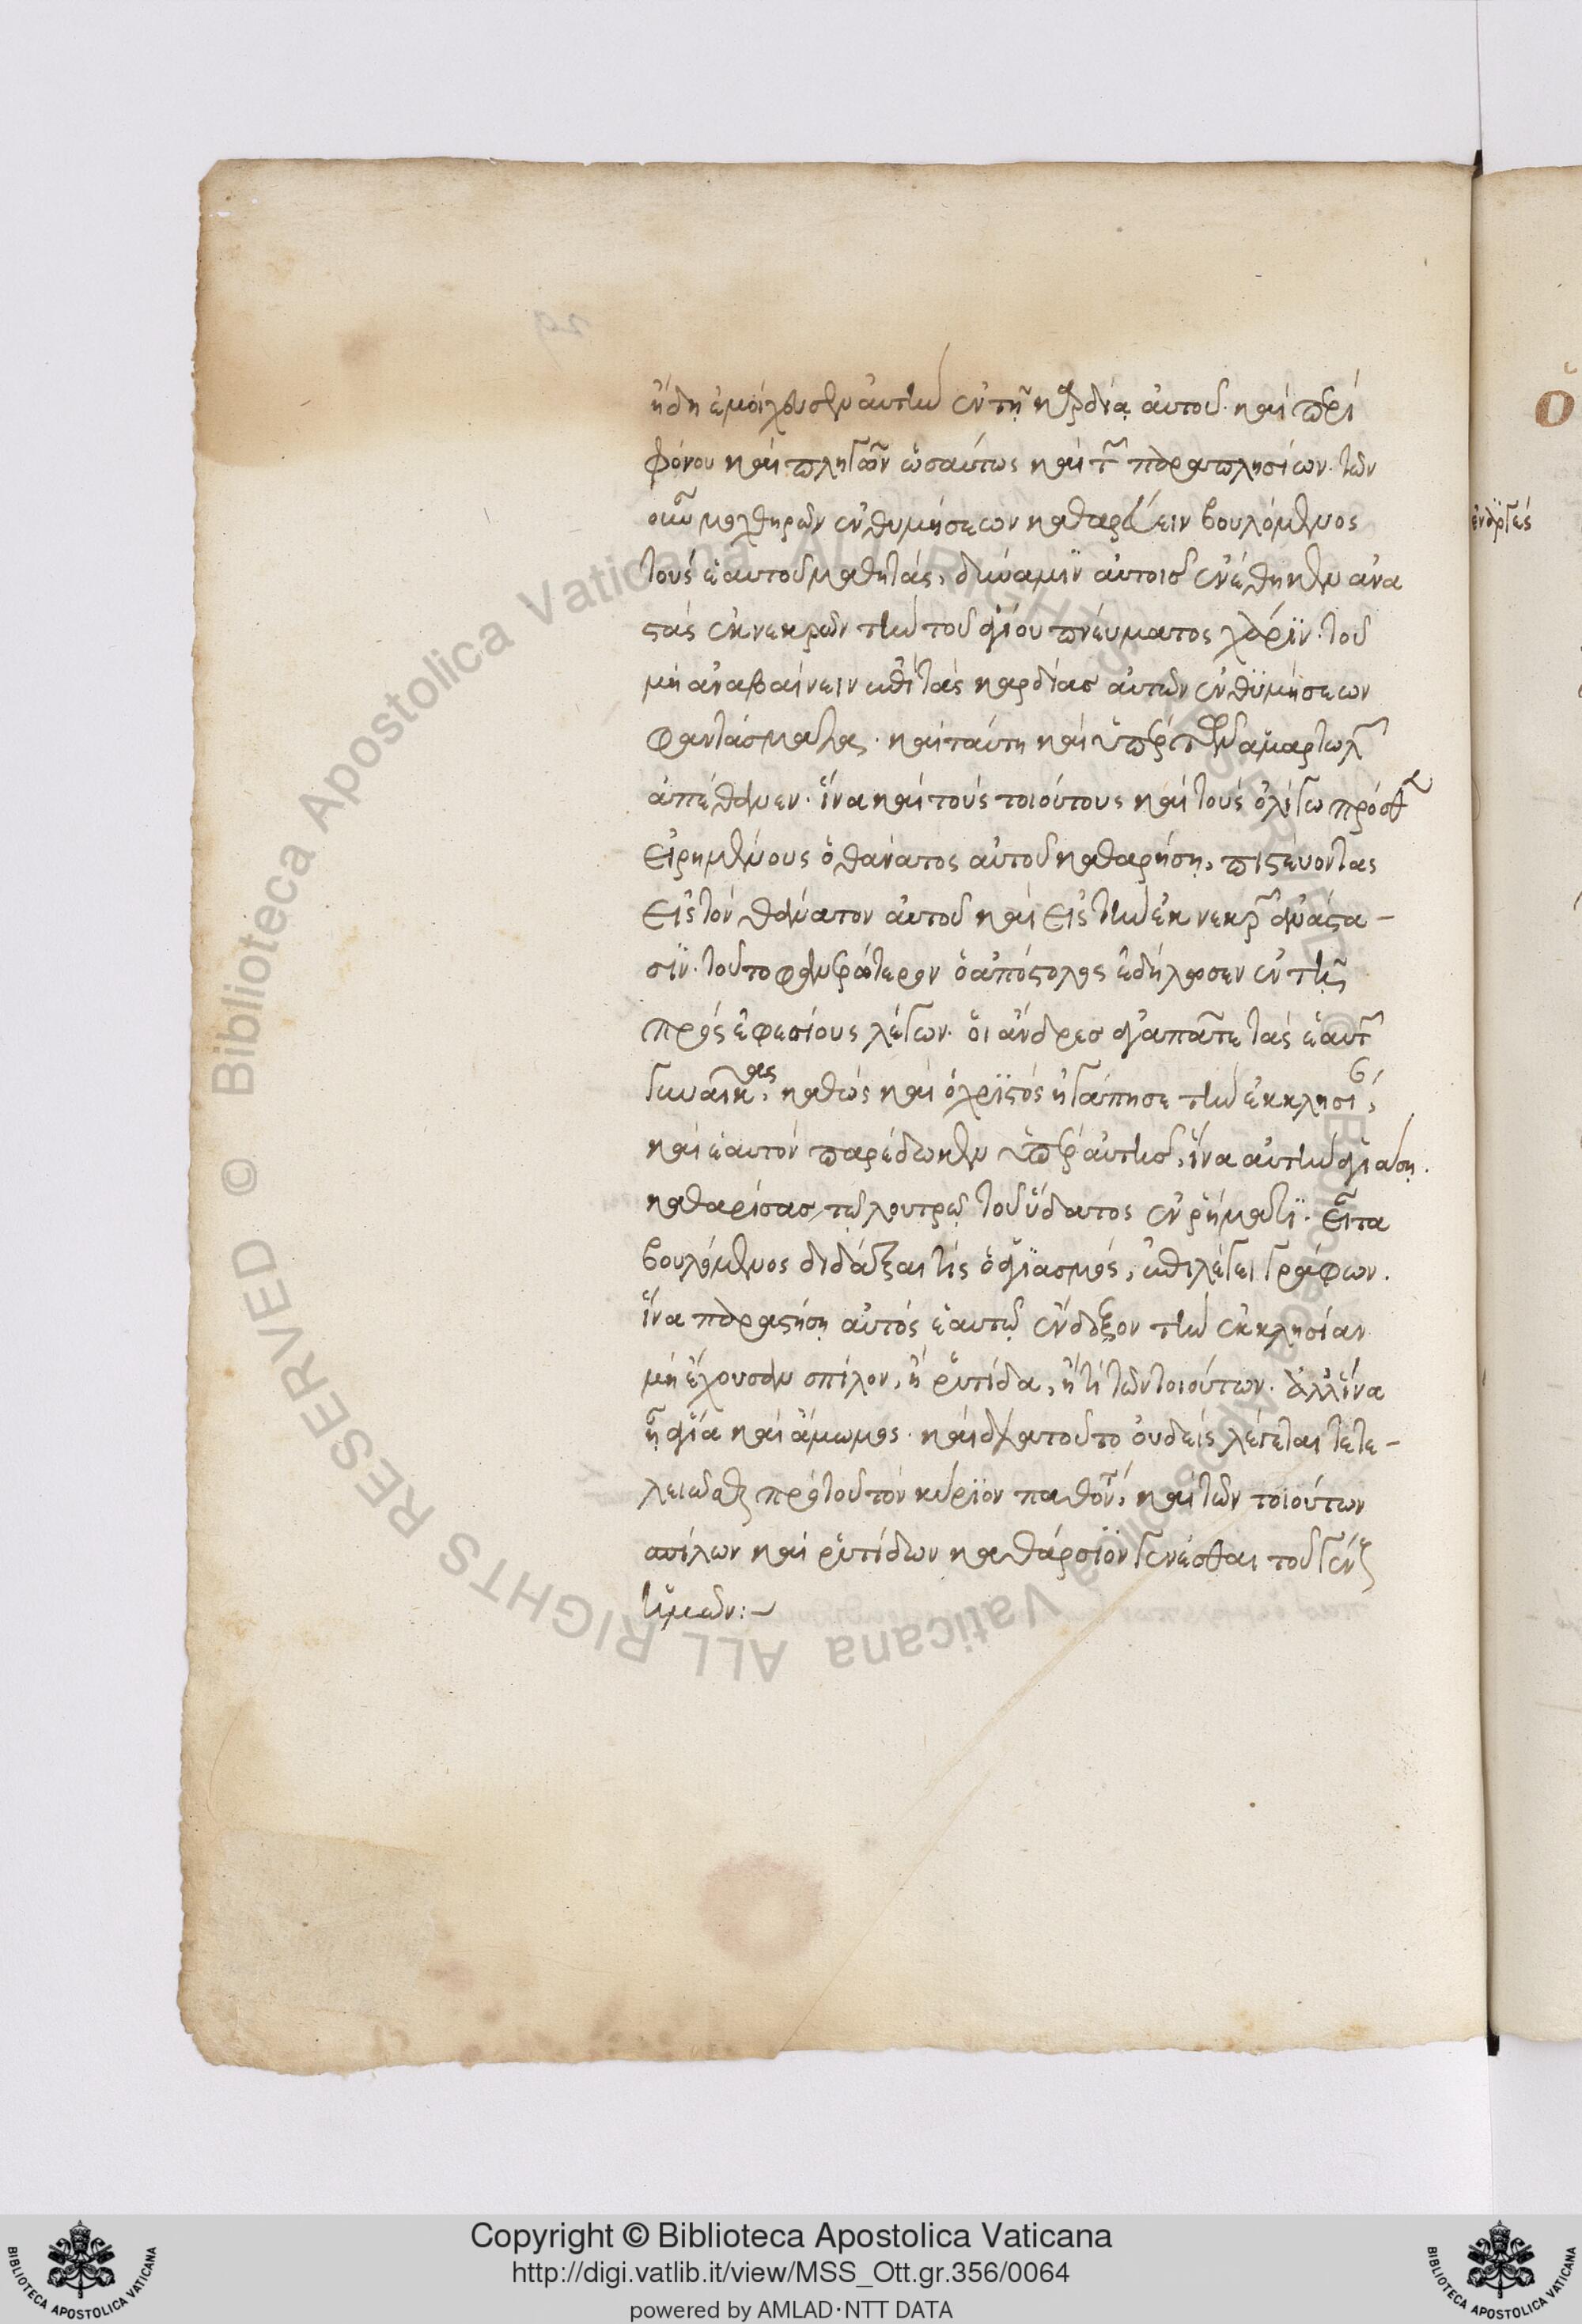 ἤδη ἐμοίχευσεν αὐτὴν ἐν τῇ καρδίᾳ αὐτοῦ· καὶ περὶ
φόνου καὶ πληγῶν ὡσαύτως καὶ τῶν παραπλησίων· τῶν
οὖν μοχθηρῶν ἐνθυμήσεων καθαρίζειν βουλόμενος
τοὺς ἑαυτοῦ μαθητάς, δύναμϊν αὐτοῖς ἐνέθηκεν ἀνα
στὰς ἐκ νεκρῶν τὴν τοῦ ἁγίου πνεύματος χάρϊν· τοῦ
μὴ ἀναβαίνειν ἐπὶ τὰς καρδίας αὐτῶν ἐνθϋμήσεων
φαντάσματα· καὶ ταύτη καὶ ὑπὲρ τῶν ἁμαρτωλῶν
ἀπέθανεν· ἵνα καὶ τοὺς τοιούτους καὶ τοὺς ὀλίγω πρόσθεν
εἰρημένους ὁ θάνατος αὐτοῦ καθαρήσῃ, πιστεύοντας
εἰς τὸν θάνατον αὐτοῦ καὶ εἰς τὴν ἐκ νεκρῶν ἀνάστα-
σϊν· τοῦτο φανερώτερον ὁ ἀπόστολος ἐδήλωσεν ἐν τῆ
πρὸς ἐφεσίους λέγων· οἱ ἄνδρες ἀγαπᾶτε τὰς ἑαυτῶν
γυναῖκας, καθὼς καὶ ὁ χρϊστὸς ἠγάπησε τὴν ἐκκλησίαν,
καὶ ἑαυτὸν παρέδωκεν ὑπὲρ αὐτῆς, ἵνα αὐτὴν ἁγιάσῃ·
καθαρίσας τῷ λουτρῷ τοῦ ὕδατος ἐν ῥήματϊ· εἶτα
βουλόμενος διδάξαι τίς ὁ ἁγϊασμός, ἐπιλέγει γράφων·
ἵνα παραστήσῃ αὐτὸς ἑαυτῷ ἔνδοξον τὴν ἐκκλησίαν
μὴ ἔχουσαν σπίλον, ἢ ῥυτίδα, ἤ τι τῶν τοιούτων· ἀλλ' ἵνα
ᾖ ἁγία καὶ ἄμωμος· καὶ διὰ τοῦτο οὐδεὶς λέγεται τετε-
λειῶσθαι πρὸ τοῦ τὸν κύρϊον παθεῖν, καὶ τῶν τοιούτων
σπίλων καὶ ῥυτίδων καθάρσϊον γενέσθαι τοῦ γένους
ἡμῶν:~